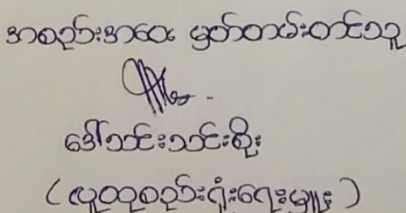 အစည်းအဝေး မှတ်တမ်းတင်သူ
ဒေါ်သင်းသင်းစိုး
(လူထုစည်းရုံးရေးမှူး)